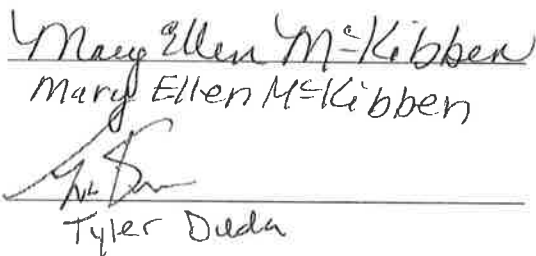 Mary Ellen McKibben
Mary Ellen McKibben
Tyler Duda